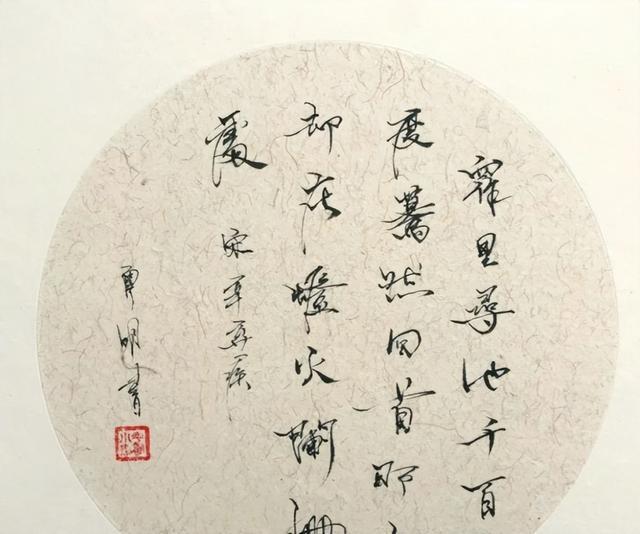 眾里尋他千百
度驀然回首那
却在燈火斕珊
處 宋辛弃疾
明書